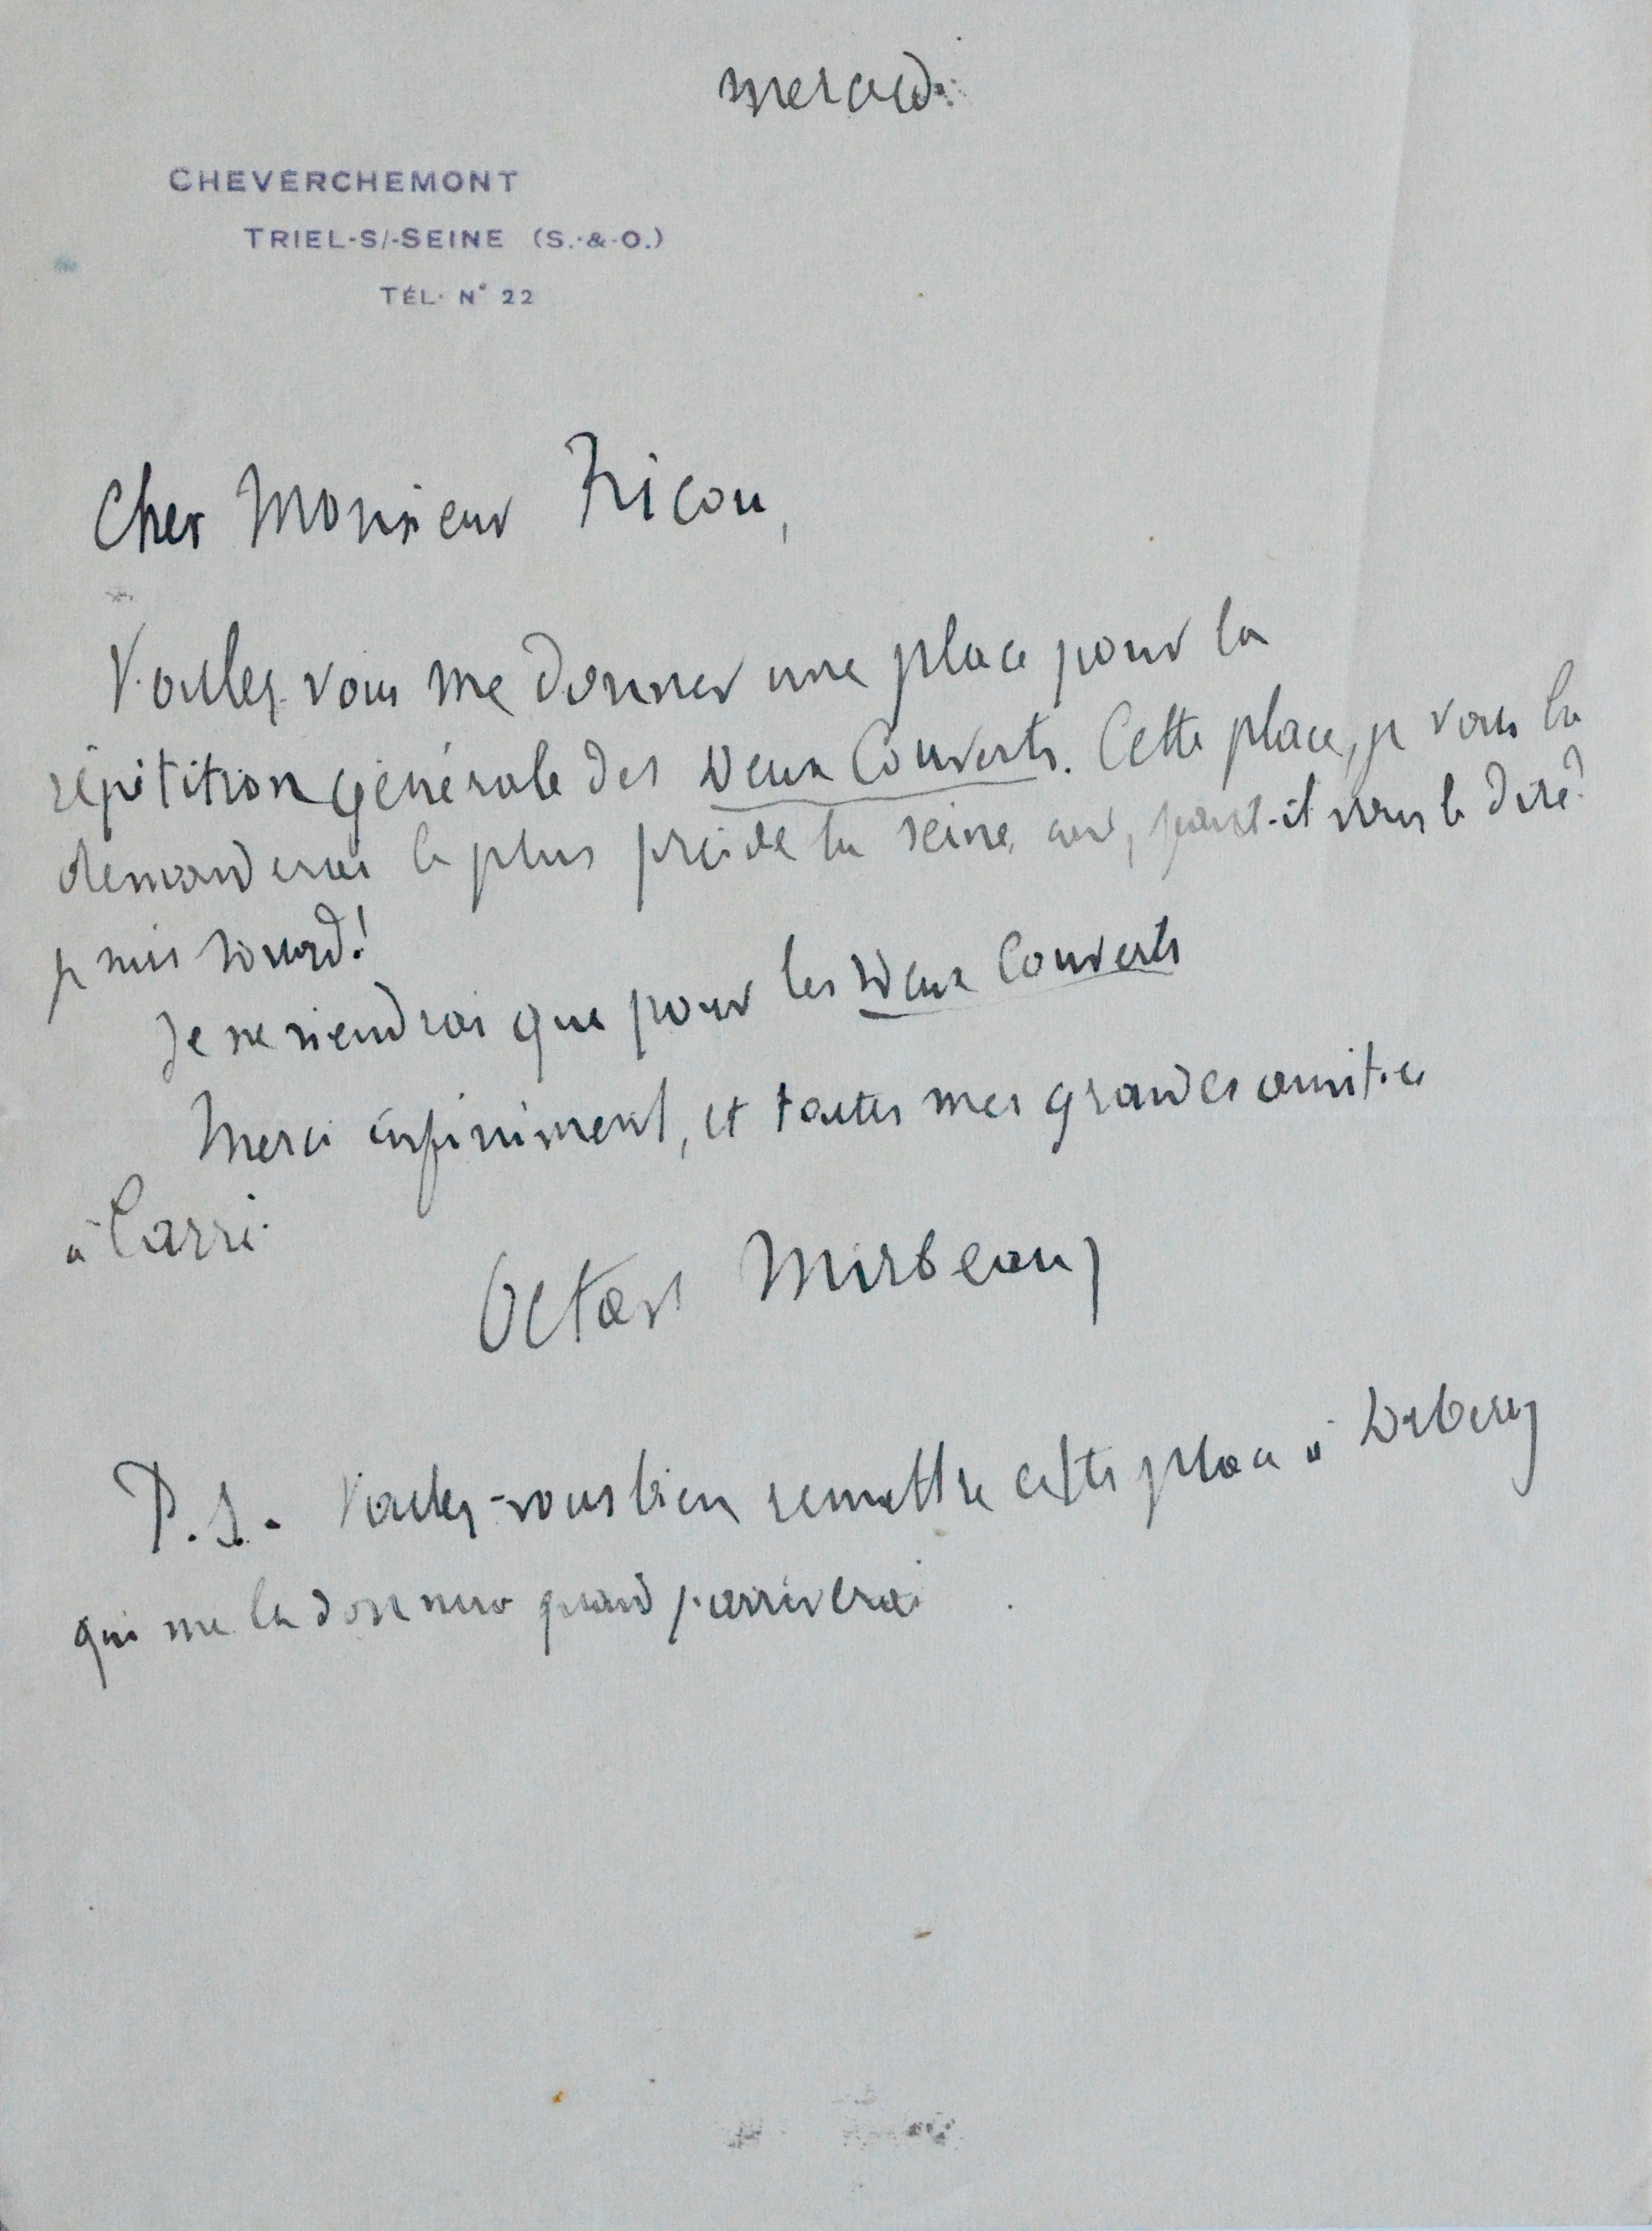 mercredi
CHEVERCHEMONT
TRIEL-S/-SEINE (S.-&-O.)
TÉL. N° 22
Cher Monsieur Ricou,
Voulez-vous me donner une place pour la
répétition générale des Deux Couverts. Cette place, je vous la
demanderai le plus près de la scène, car, faut-il vous le dire?
je suis sourd!
Je ne viendrai que pour les Deux Couverts
Merci infiniment, et toutes mes grandes amitiés
à Carré.
Octave Mirbeau
P.S. - Voulez-vous bien remettre cette place à
qui me la donnera quand j'arriverai